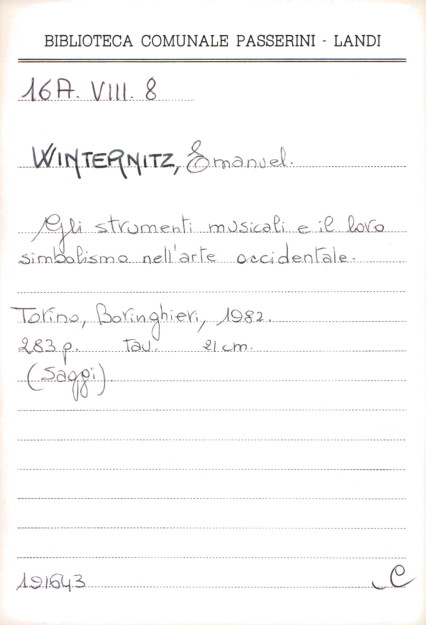 BIBLIOTECA COMUNALE PASSERINI - LANDI
16A. VIII. 8
WINTERNITZ, Emanuel.
Gli strumenti musicali e il loro
simbolismo nell'arte occidentale.
Torino, Boringhieri, 1982.
283 p. tav. 21 cm.
(Saggi).
191643 C